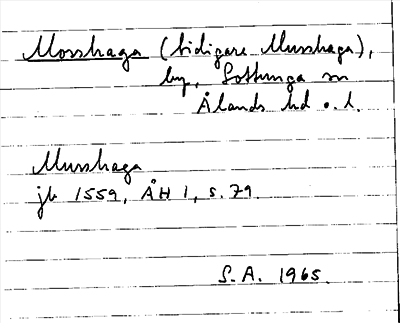 Mosshaga (tidigare Musshaga),
by, Sottunga sn
Ålands hd o. l.
Musshaga
jb 1559, ÅH 1, s. 79.
S.A. 1965.